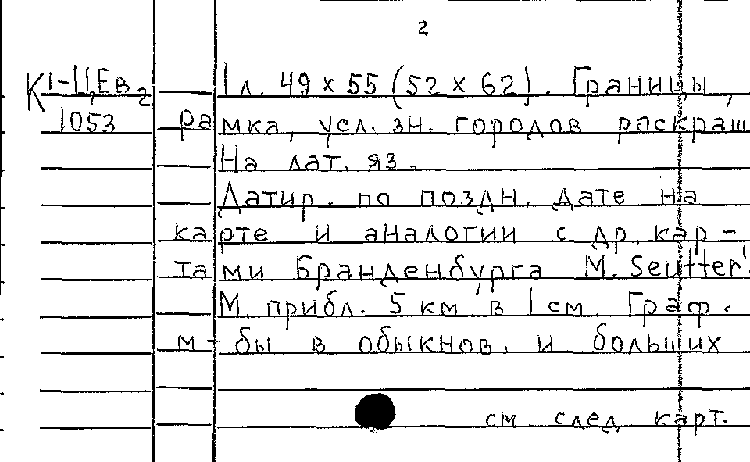 2
К 1-Ц,Ев 2 1 л. 49 х 55 (52 х 62). Границы,
1053 рамка, усл. зн. городов раскраш
На лат. яз.
Датир. по поздн. дате на
карте и аналогии с др. кар-
тами Бранденбурга M. Seutter'
М прибл. 5 км в 1 см. Граф.
м-бы в обыкнов. и больших
см след карт.